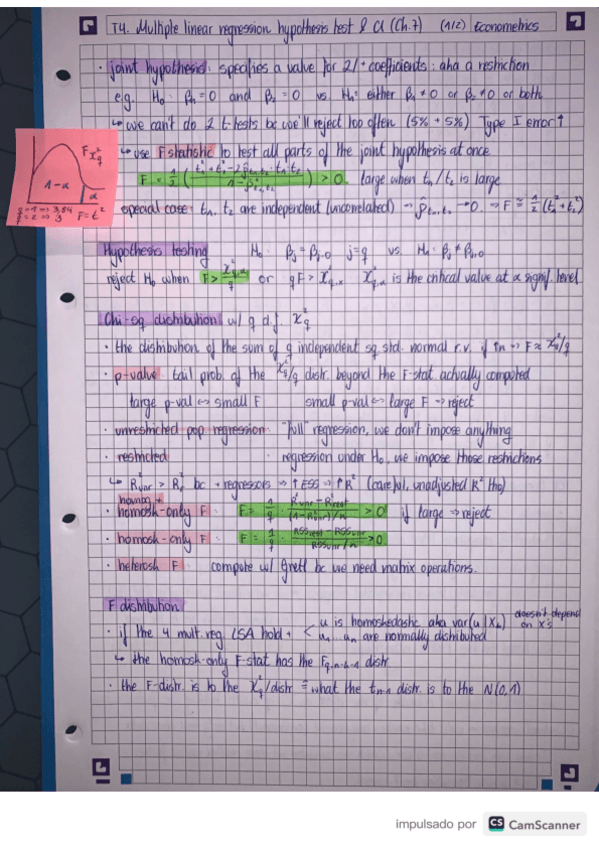 T4. Multiple linear regression hypothesis test & CI (Ch.7) (1/2) Econometrics
· joint hypothesis: specifies a value for 2/+ coefficients: aka a restriction
e.g. H₀: β₁ = 0 and β₂ = 0 vs. H₁: either β₁ ≠ 0 or β₂ ≠ 0 or both
↳ we can't do 2 t-tests bc we'll reject too often (5% + 5%) Type I error ↑
↳ use F statistic to test all parts of the joint hypothesis at once
large when t₁/t₂ is large
special case: t₁, t₂ are independent (uncorrelated)
F χ²q
1-α
α
F = t²
Hypothesis testing H₀: βj = βj,0 j = q vs. H₁: βj ≠ βj,0
reject H₀ when F > χ²q,α/q or qF > χ²q,α χ²q,α is the critical value at α signif. level
Chi-sq distribution w/ q d.f. χ²q
· the distribution of the sum of q independent sq. std. normal r.v. if ↑n => F ≈ χ²q/q
· p-value: tail prob. of the χ²q/q distr. beyond the F-stat actually computed
large p-val <=> small F small p-val <=> large F => reject
· unrestricted pop regression: "full" regression, we don't impose anything
· restricted : regression under H₀, we impose those restrictions
↳ R²unr > R²r bc + regressors => ↑ESS => ↑R² (careful, unadjusted R² tho)
· homosk-only F: > 0 if large => reject
· homosk-only F: > 0
· heterosk F: compute w/ Gretl bc we need matrix operations.
F distribution
· if the 4 mult. reg. LSA hold + < u is homoskedastic aka var(u|Xs) doesn't depend on X's
u₁...un are normally distributed
↳ the homosk-only F-stat has the Fq,n-k-1 distr
· the F-distr. is to the χ²q/distr = what the tn-1 distr. is to the N(0,1)
impulsado por CS CamScanner